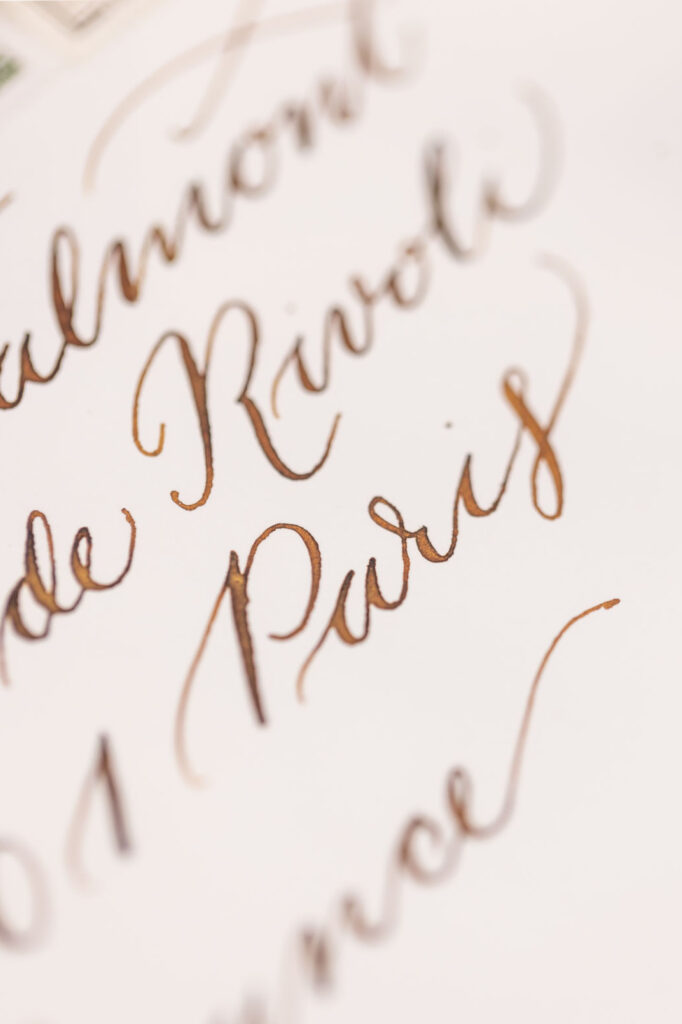 almont
de Rivoli
01 Paris
ance